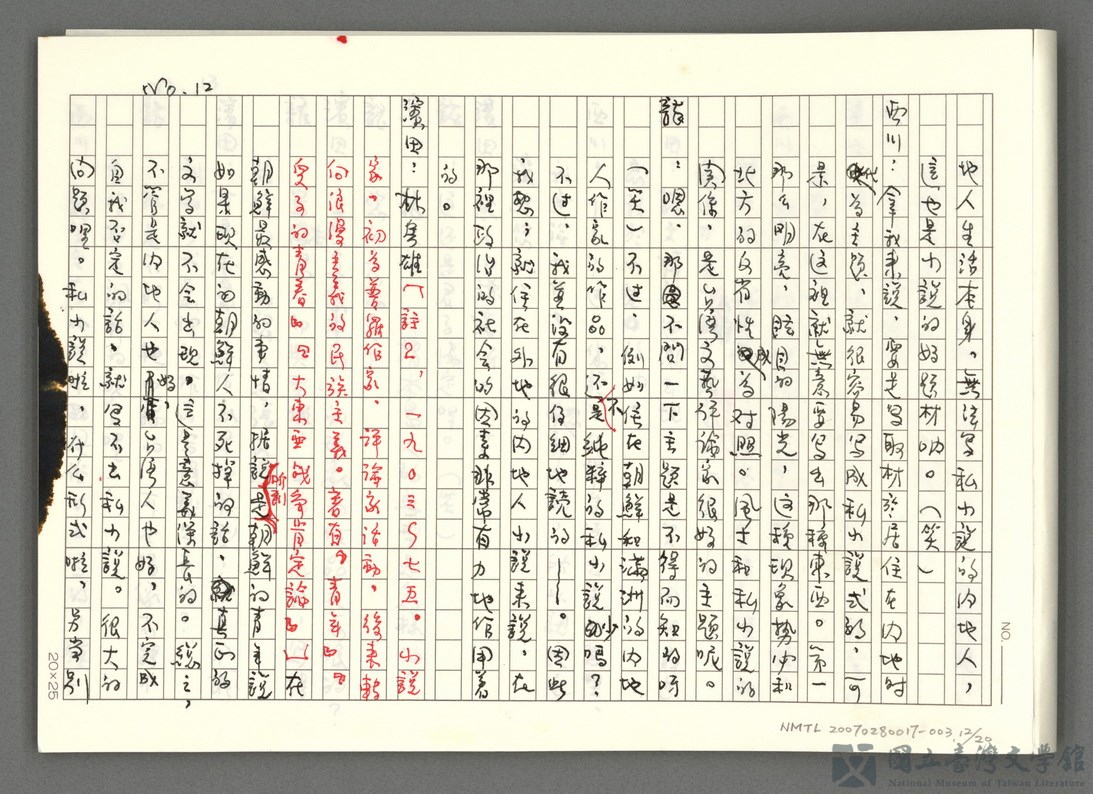 No. 12
地人生活本身。無法寫私小說的內地人，
這也是小說的好題材吶。（笑）
西川：拿我來說，要是寫取材於居住在內地時
為主題，就很容易寫成私小說式的，可
是，在這裡就無意要寫出那種東西。第一
那么明亮，眩目的陽光，這種現象勢必和
北方的女省性成為對照。風土和私小說的
關係，是台灣文藝評論家很好的主題呢。
龍：嗯，那不問一下主題是不得而知的呀
（笑）不过，例如住在朝鮮和滿洲的內地
人作家的作品，不是純粹的私小說少嗎？
不过，我並沒有很仔細地讀的——。因此
我想，就住在外地的內地人小說來說，在
那裡政治的社會的因素非常有力地作用着
的。
濱田：林房雄（註2，一九〇三～七五。小說
家。初為普羅作家，評論家活動，後來轉
向浪漫主義的民族主義。著有『青年』『
與子的青春』『大東亞戰爭肯定論』）在
朝鮮最感動的事情，据說是朝鮮的青年說
如果現在的朝鮮人不死掉的話，真正的
文學就不會出現。這是意義深長的。總之，
不管是內地人也好台灣人也好，不完成
自我否定的話，就寫不出私小說。很大的
問題哩。私小說啦，什么形式啦，另當別
20×25
NO.
NMTL 20070280017-003, 12/20
國立臺灣文學館
National Museum of Taiwan Literature